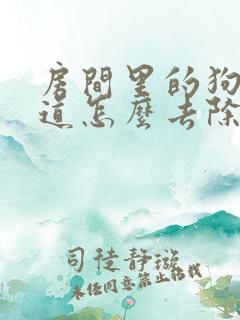 房間里的狗
道怎麼去除
司徒静璇
未经同意禁止转载